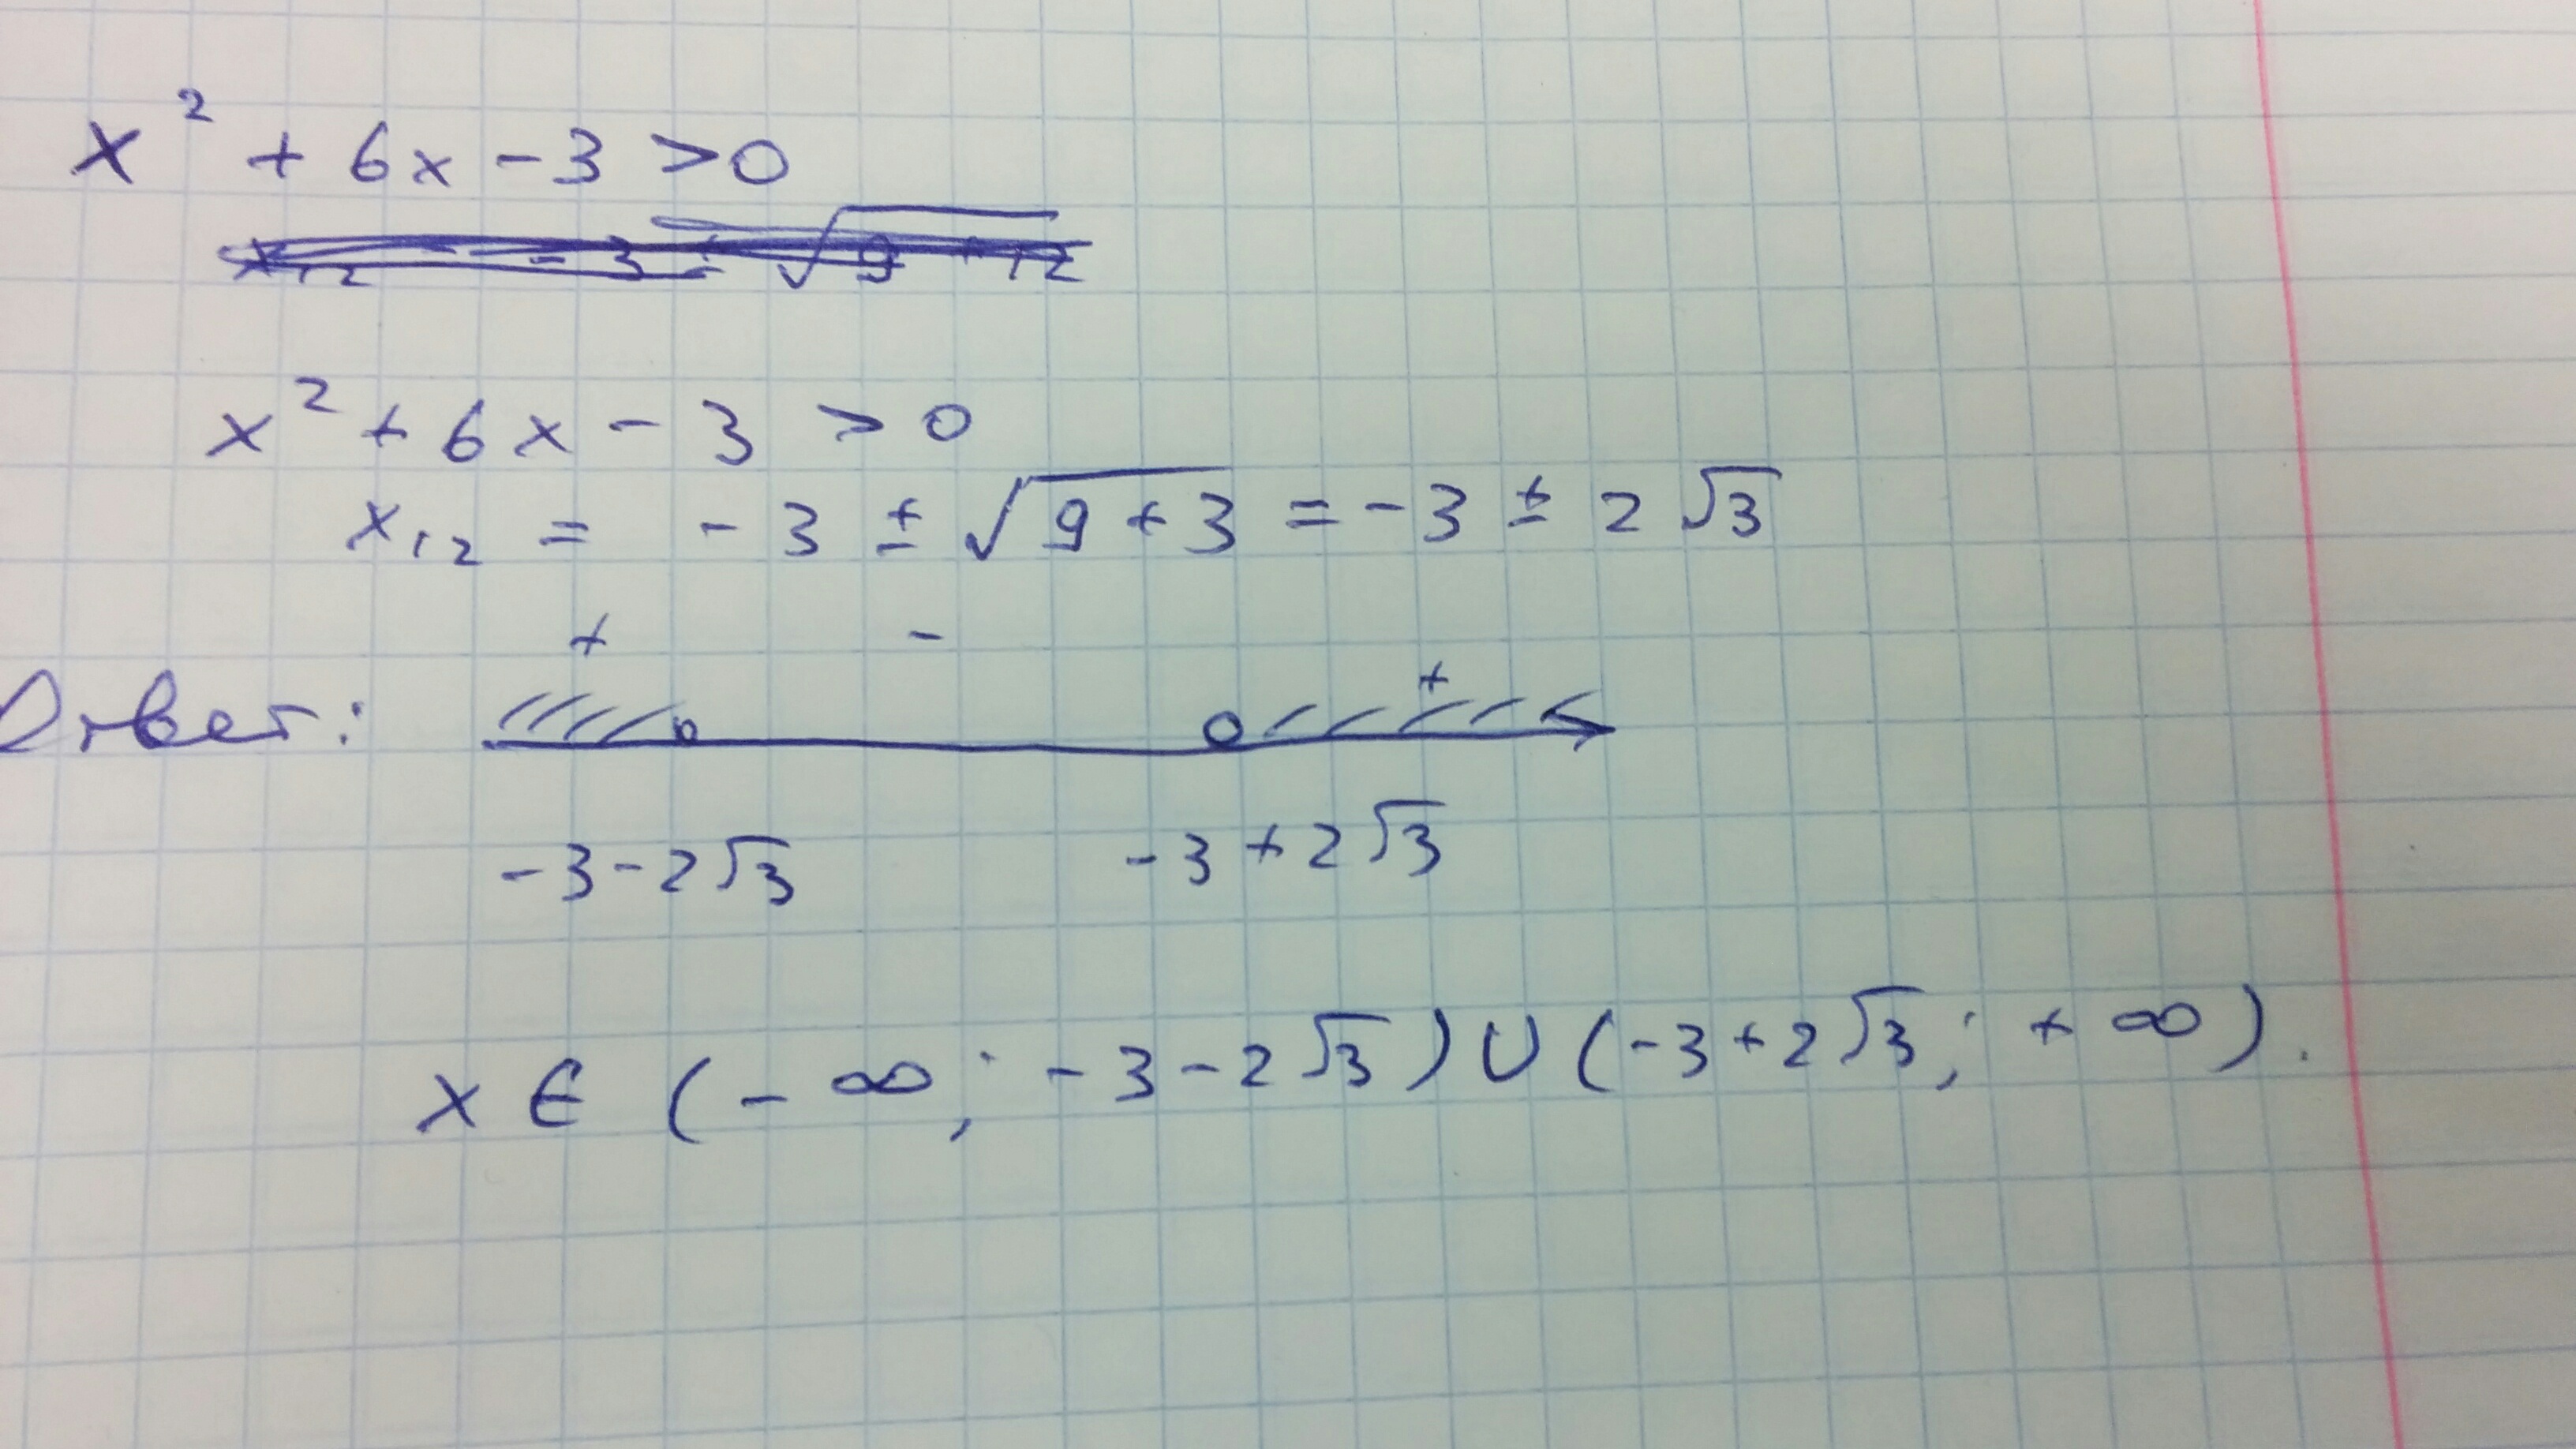 x² + 6x - 3 > 0
x₁₂ = -3 ± √9 + 12
x² + 6x - 3 > 0
x₁₂ = -3 ± √(9 + 3) = -3 ± 2√3
+ - +
Ответ:
-3-2√3 -3+2√3
x ∈ (-∞; -3-2√3) ∪ (-3+2√3; +∞).